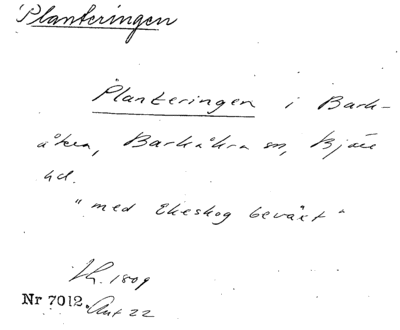 Planteringen
Planteringen i Bark-
åkra, Barkåkra sn, Bjäre
hd.
"med Ekeskog beväxt"
1809
Nr 7012. Akt 22